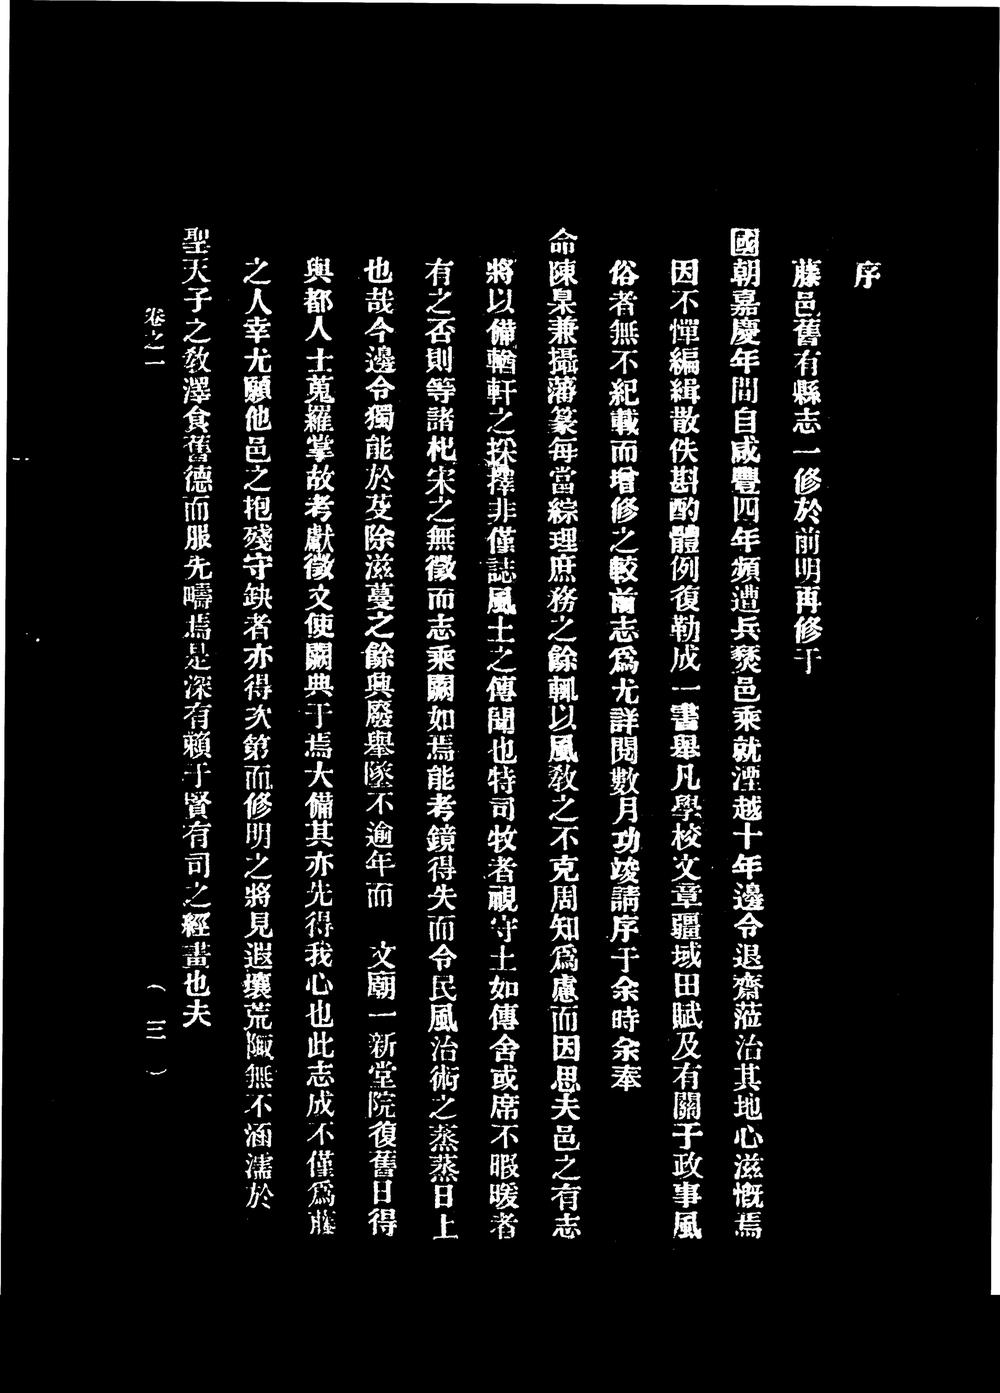 序
藤邑舊有縣志一修於前明再修于
國朝嘉慶年間自咸豐四年頻遭兵燹邑乘就湮越十年邊令退齋蒞治其地心滋慨焉
因不憚編緝散佚斟酌體例復勒成一書舉凡學校文章疆域田賦及有關于政事風
俗者無不紀載而增修之較前志爲尤詳閱數月功竣請序于余時余奉
命陳臬兼攝藩篆每當綜理庶務之餘輒以風敎之不克周知爲慮而因思夫邑之有志
將以備輶軒之採擇非僅誌風土之傳聞也特司牧者視守土如傳舍或席不暇暖者
有之否則等諸杞宋之無徵而志乘闕如焉能考鏡得失而令民風治術之蒸蒸日上
也哉今邊令獨能於芟除滋蔓之餘興廢舉墜不逾年而 文廟一新堂院復舊日得
與都人士蒐羅掌故考獻徵文使闕典于焉大備其亦先得我心也此志成不僅爲藤
之人幸尤願他邑之抱殘守缺者亦得次第而修明之將見遐壤荒陬無不涵濡於
聖天子之敎澤食舊德而服先疇焉是深有賴于賢有司之經畫也夫
卷之一
(三)